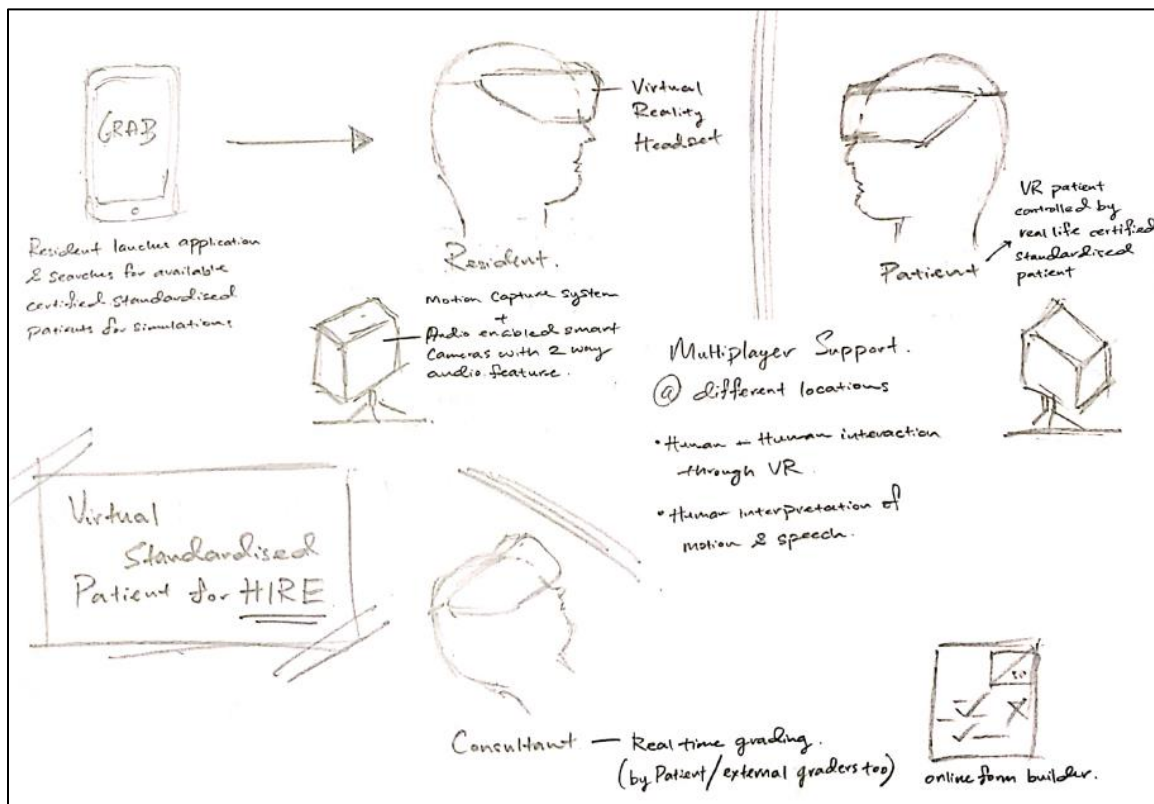 GRAB
Resident lauches application
& searches for available
certified standardised
patients for simulations
Virtual
Reality
Headset
Resident.
Motion Capture system
+
Audio enabled smart
Cameras with 2 way
audio feature.
VR patient
controlled by
real life certified
standardised
patient
Patient
Multiplayer Support.
@ different locations
• Human + Human interaction
through VR.
• Human interpretation of
motion & speech.
Virtual
Standardised
Patient for HIRE
Consultant — Real time grading.
(by Patient/external graders too)
online form builder.